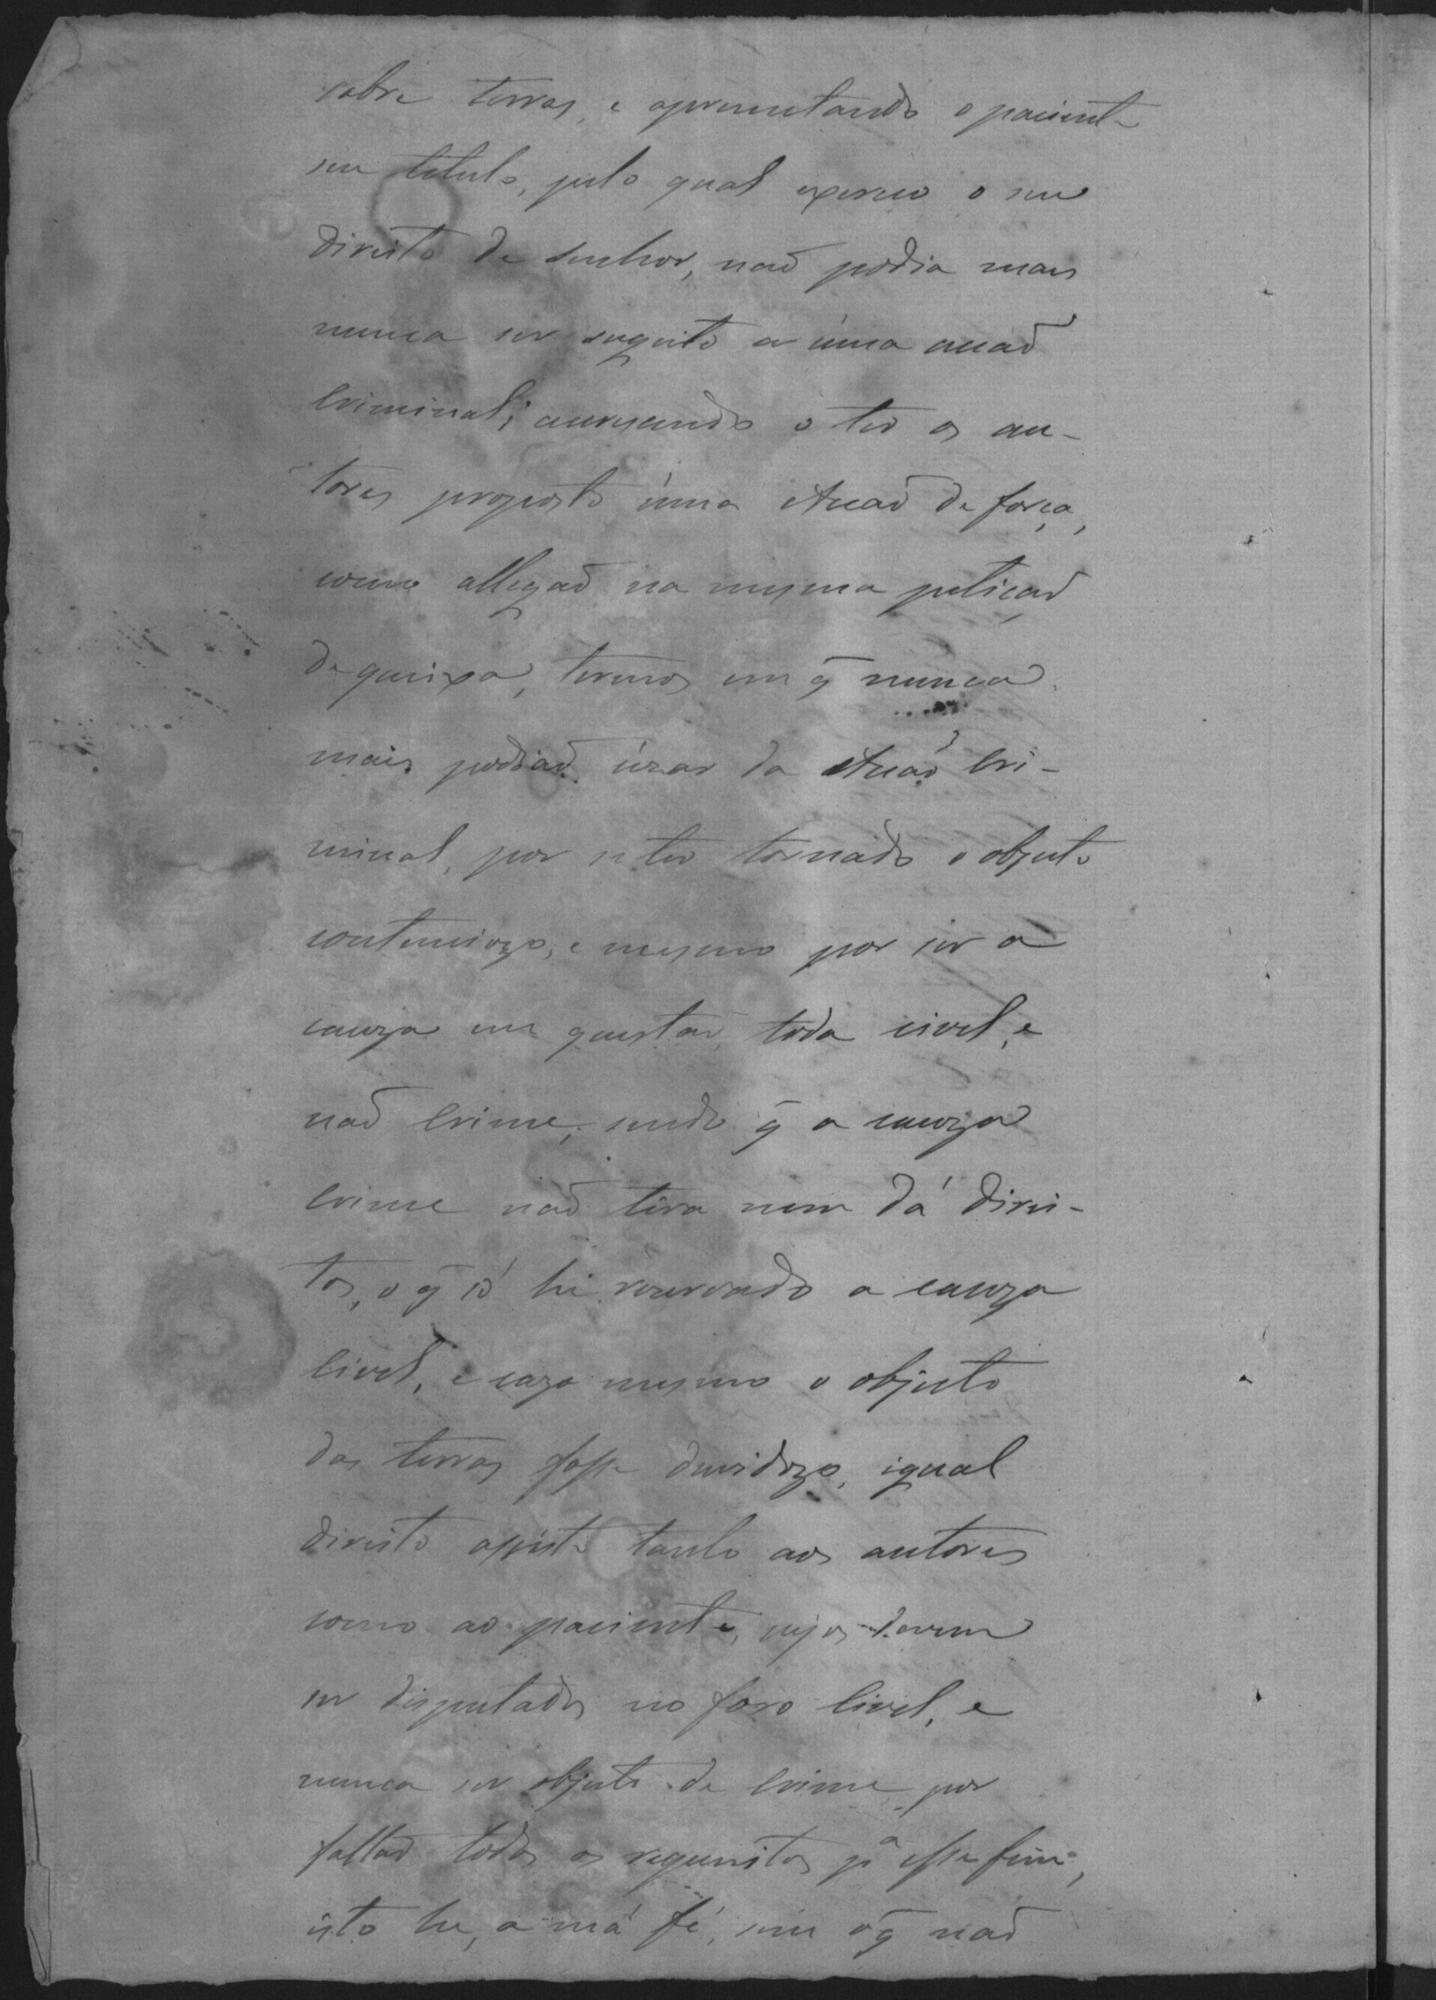 sobre terras, e aprezentando o paciente
seu titulo, pelo qual exerceo o seu
direito de senhor, naõ podia mais
nunca ser sugeito a úma acçaõ
Criminal; acressendo o ter os au-
tores proposto úma Acçaõ de força,
como allegaõ na mesma petiçaõ
de queixa, termos em q̃ nunca
mais podiaõ úzar da Acçaõ Cri-
minal, por se ter tornado o objecto
contenciozo, e mesmo por ser a
cauza em questaõ toda civel, e
naõ Crime, sendo q̃ a cauza
crime naõ tira nem dá direi-
tos, o q̃ só he rezervado a cauza
Civel, e cazo mesmo o objecto
das terras fosse duvidozo, igual
direito assiste tanto aos autores
como ao paciente, cujos devem
ser disputados no foro Civel, e
nunca ser objecto de Crime, por
faltaõ todos os requezitos pª esse fim,
isto he, a má fé, sem o q̃ naõ